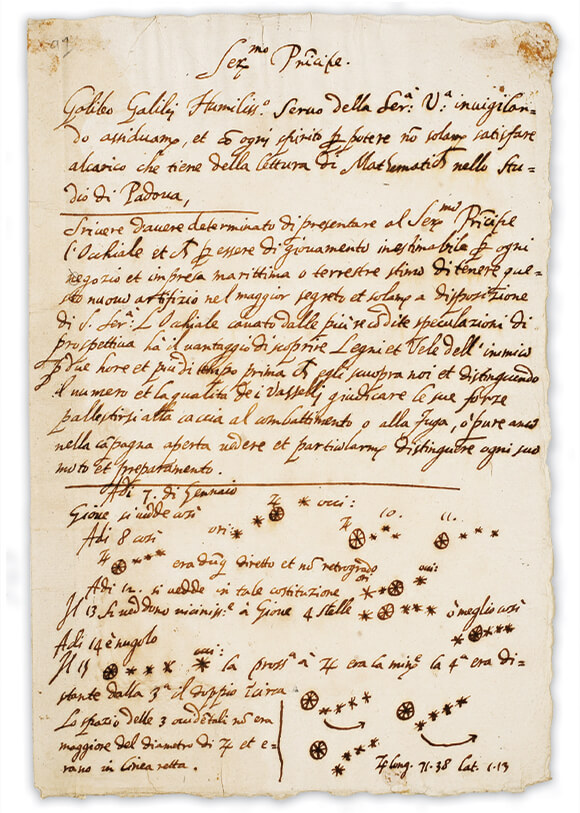 Ser.mo Prĩcipe.
Galileo Galilej Humiliss.o Servo della Ser.a V.a invigilan-
do assiduam.e, et cõ ogni spirito p potere nõ solam.e satisfare
alcarico che tiene della lettura di Mathematich nello Stu-
dio di Padova,
Scrivere davere determinato di presentare al Ser.mo Prĩcipe
l'Occhiale et p essere di giovamento inestimabile p ogni
negozio et impresa marittima o terrestre stimo di tenere que-
sto nuovo artifizio nel maggior segreto et solam.e a disposizione
di S. Ser.a L'Occhiale cavato dalle più recõdite speculazioni di
prospettiva hà il vantaggio di scoprire Legni et Vele dell'inimico
p due hore et più di tempo prima egli scuopra noi et distinguendo
il numero et la qualità de i Vasselli giudicare le sue forze
pallestirsi alla caccia al combattimento o alla fuga, ò pure anco
nella cãpagna aperta vedere et particolarm.e distinguere ogni suo
moto et preparamento.
Adi 7. di Gennaio
Giove si vedde così ♃ occi:
Adi 8 così ori: ♃ 10. 11.
♃ era dũq diretto et nõ retrogrado
Adi 12. si vedde in tale costituzione ori occi:
Il 13 si veddono vicinisse à Giove 4 stelle ò meglio così
Adi 14 è nugolo
Il 15 occi: la pross.a à ♃ era la min.e la 4.a era di-
stante dalla 3.a il doppio Ĩcirca
Lo spazio delle 3 occidẽtali nõ era
maggiore del diametro di ♃ et e-
rano in linea retta.
♃ long. 71.38 lat. 1.13